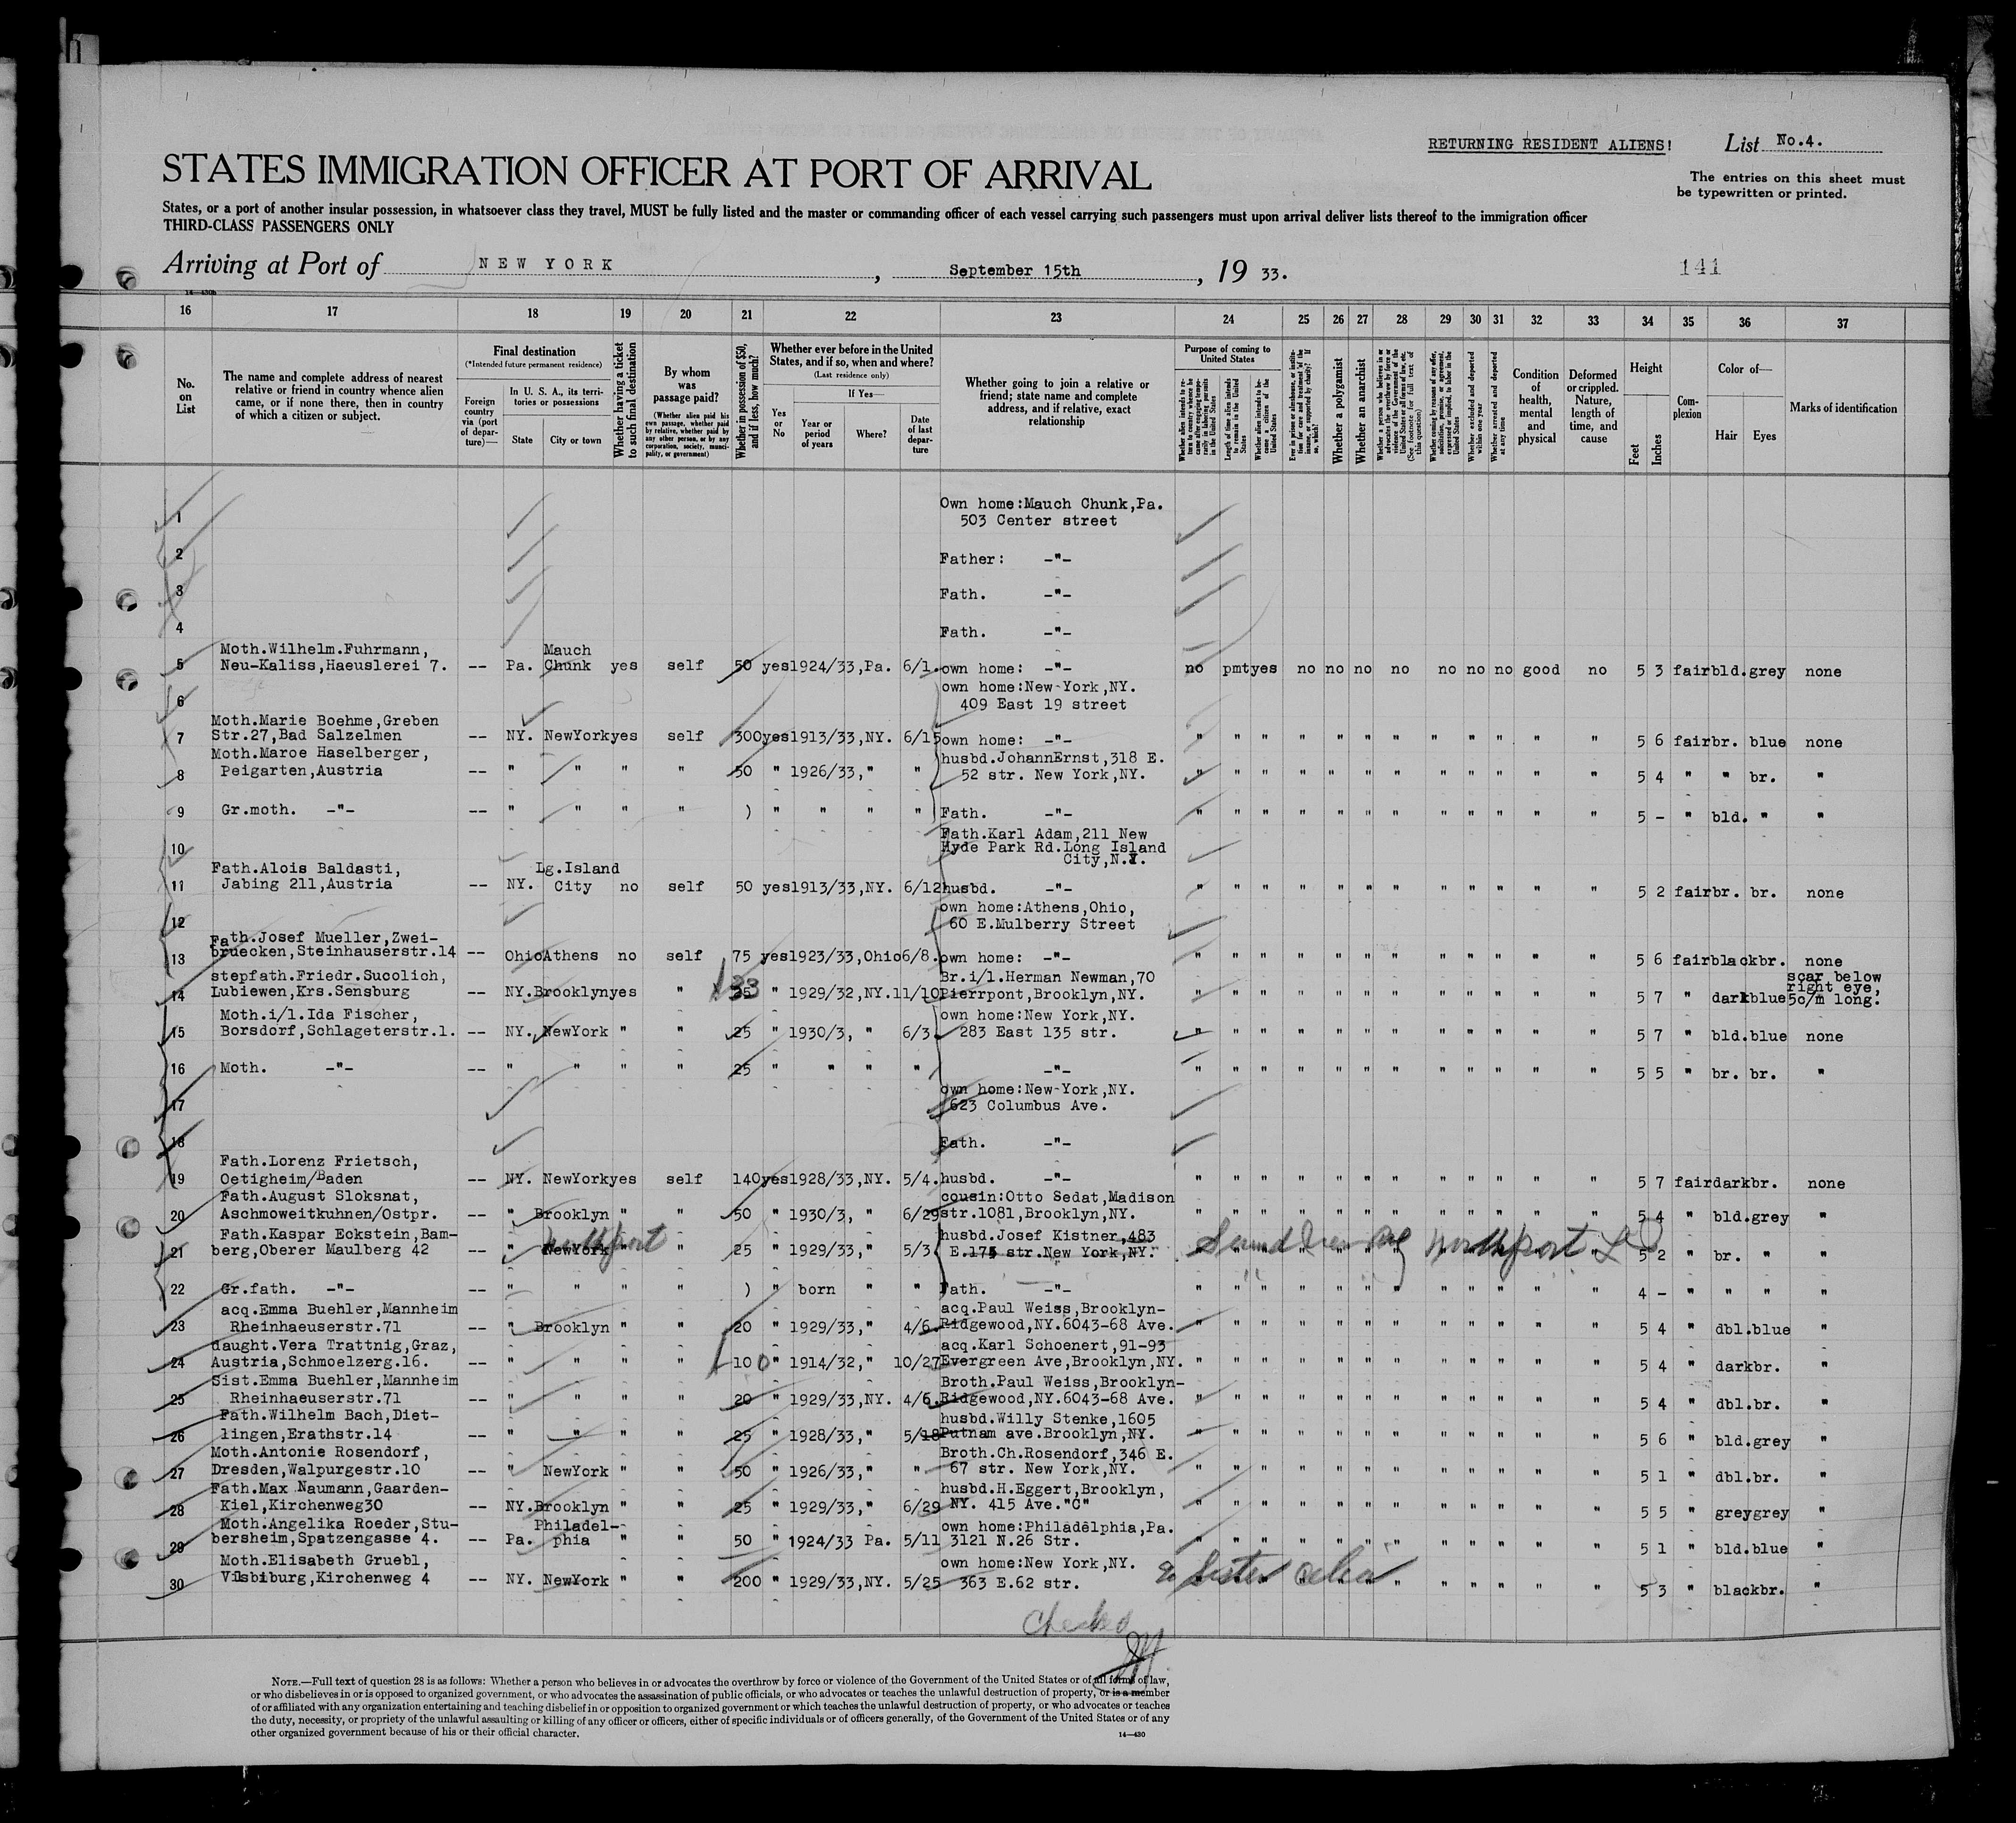 RETURNING RESIDENT ALIENS!
List No.4.
STATES IMMIGRATION OFFICER AT PORT OF ARRIVAL
The entries on this sheet must
be typewritten or printed.
States, or a port of another insular possession, in whatsoever class they travel, MUST be fully listed and the master or commanding officer of each vessel carrying such passengers must upon arrival deliver lists thereof to the immigration officer
THIRD-CLASS PASSENGERS ONLY
Arriving at Port of NEW YORK, September 15th, 19 33.
141
16 17 18 19 20 21 22 23 24 25 26 27 28 29 30 31 32 33 34 35 36 37
No. on List
The name and complete address of nearest relative or friend in country whence alien came, or if none there, then in country of which a citizen or subject.
Final destination
(*Intended future permanent residence)
Foreign country via (port of departure)—
In U. S. A., its territories or possessions
State
City or town
Whether having a ticket to such final destination
By whom was passage paid?
(Whether alien paid his own passage, whether paid by relative, whether paid by any other person, or by any corporation, society, municipality, or government)
Whether in possession of $50, and if less, how much?
Whether ever before in the United States, and if so, when and where?
(Last residence only)
Yes or No
If Yes—
Year or period of years
Where?
Date of last departure
Whether going to join a relative or friend; state name and complete address, and if relative, exact relationship
Purpose of coming to United States
Length of time alien intends to remain in the United States
Whether alien intends to become a citizen of the United States
Whether a polygamist
Whether an anarchist
Whether arrested and deported at any time
Condition of health, mental and physical
Deformed or crippled. Nature, length of time, and cause
Height
Feet
Inches
Complexion
Color of—
Hair
Eyes
Marks of identification
1 Own home:Mauch Chunk,Pa.
503 Center street
2 Father: -"-
3 Fath. -"-
4 Fath. -"-
Moth.Wilhelm.Fuhrmann, Mauch
5 Neu-Kaliss,Haeuslerei 7. -- Pa. Chunk yes self 50 yes1924/33,Pa. 6/1. own home: -"- no pmt yes no no no no no no no good no 5 3 fair bld. grey none
6 own home:New York,NY.
409 East 19 street
Moth.Marie Boehme,Greben
7 Str.27,Bad Salzelmen -- NY. NewYork yes self 300 yes1913/33,NY. 6/15 own home: -"- " " " " " " " " " " " " 5 6 fair br. blue none
Moth.Maroe Haselberger, husbd.JohannErnst,318 E.
8 Peigarten,Austria -- " " " " 50 " 1926/33," " 52 str. New York,NY. " " " " " " " " " " " " 5 4 " " br. "
9 Gr.moth. -"- -- " " " " ) " " " " Fath. -"- " " " " " " " " " " " " 5 - " bld. " "
10 Fath.Karl Adam,211 New
Hyde Park Rd.Long Island
City,N.Y.
Fath.Alois Baldasti, Lg.Island
11 Jabing 211,Austria -- NY. City no self 50 yes1913/33,NY. 6/12 husbd. -"- " " " " " " " " " " " " 5 2 fair br. br. none
12 own home:Athens,Ohio,
60 E.Mulberry Street
Fath.Josef Mueller,Zwei-
13 bruecken,Steinhauserstr.14 -- Ohio Athens no self 75 yes1923/33,Ohio 6/8. own home: -"- " " " " " " " " " " " " 5 6 fair black br. none
stepfath.Friedr.Sucolich, Br.i/l.Herman Newman,70 scar below
14 Lubiewen,Krs.Sensburg -- NY. Brooklyn yes " 25 " 1929/32,NY. 11/10 Pierrpont,Brooklyn,NY. " " " " " " " " " " " " 5 7 " dark blue right eye,
5c/m long.
Moth.i/l.Ida Fischer, own home:New York,NY.
15 Borsdorf,Schlageterstr.1. -- NY. NewYork " " 25 " 1930/3, " 6/3. 283 East 135 str. " " " " " " " " " " " " 5 7 " bld. blue none
16 Moth. -"- -- " " " " 25 " " " " -"- " " " " " " " " " " " " 5 5 " br. br. "
17 own home:New-York,NY.
623 Columbus Ave.
18 Fath. -"-
Fath.Lorenz Frietsch,
19 Oetigheim/Baden -- NY. NewYork yes self 140 yes1928/33,NY. 5/4. husbd. -"- " " " " " " " " " " " " 5 7 fair dark br. none
Fath.August Sloksnat, cousin:Otto Sedat,Madison
20 Aschmoweitkuhnen/Ostpr. -- " Brooklyn " " 50 " 1930/3, " 6/29 str.1081,Brooklyn,NY. " " " " " " " " " " " " 5 4 " bld. grey "
Fath.Kaspar Eckstein,Bam- Northport husbd.Josef Kistner,483
21 berg,Oberer Maulberg 42 -- " NewYork " " 25 " 1929/33," 5/3 E.175 str.New York,NY. Northport 5 2 " br. " "
22 Gr.fath. -"- -- " " " " ) " born " " Fath. -"- " " " " " " " " " " " " 4 - " " " "
acq.Emma Buehler,Mannheim acq.Paul Weiss,Brooklyn-
23 Rheinhaeuserstr.71 -- " Brooklyn " " 20 " 1929/33," 4/6. Ridgewood,NY.6043-68 Ave. " " " " " " " " " " " " 5 4 " dbl. blue "
daught.Vera Trattnig,Graz, acq.Karl Schoenert,91-93
24 Austria,Schmoelzerg.16. -- " " " " 100 " 1914/32," 10/27 Evergreen Ave,Brooklyn,NY. " " " " " " " " " " " " 5 4 " dark br. "
Sist.Emma Buehler,Mannheim Broth.Paul Weiss,Brooklyn-
25 Rheinhaeuserstr.71 -- " " " " 20 " 1929/33,NY. 4/6. Ridgewood,NY.6043-68 Ave. " " " " " " " " " " " " 5 4 " dbl. br. "
Fath.Wilhelm Bach,Diet- husbd.Willy Stenke,1605
26 lingen,Erathstr.14 -- " " " " 25 " 1928/33," 5/18 Putnam ave.Brooklyn,NY. " " " " " " " " " " " " 5 6 " bld. grey "
Moth.Antonie Rosendorf, Broth.Ch.Rosendorf,346 E.
27 Dresden,Walpurgestr.10 -- " NewYork " " 50 " 1926/33," " 67 str. New York,NY. " " " " " " " " " " " " 5 1 " dbl. br. "
Fath.Max Naumann,Gaarden- husbd.H.Eggert,Brooklyn,
28 Kiel,Kirchenweg30 -- NY. Brooklyn " " 25 " 1929/33," 6/29 NY. 415 Ave."C" " " " " " " " " " " " " 5 5 " grey grey "
Moth.Angelika Roeder,Stu- Philadel- own home:Philadelphia,Pa.
29 bersheim,Spatzengasse 4. -- Pa. phia " " 50 " 1924/33 Pa. 5/11 3121 N.26 Str. " " " " " " " " " " " " 5 1 " bld. blue "
Moth.Elisabeth Gruebl, own home:New York,NY.
30 Vilsbiburg,Kirchenweg 4 -- NY. NewYork " " 200 " 1929/33,NY. 5/25 363 E.62 str. Sister " " " " " 5 3 " black br. "
Checked
NOTE.—Full text of question 28 is as follows: Whether a person who believes in or advocates the overthrow by force or violence of the Government of the United States or of all forms of law,
or who disbelieves in or is opposed to organized government, or who advocates the assassination of public officials, or who advocates or teaches the unlawful destruction of property, or is a member
of or affiliated with any organization entertaining and teaching disbelief in or opposition to organized government or which teaches the unlawful destruction of property, or who advocates or teaches
the duty, necessity, or propriety of the unlawful assaulting or killing of any officer or officers, either of specific individuals or of officers generally, of the Government of the United States or of any
other organized government because of his or their official character.
14—430